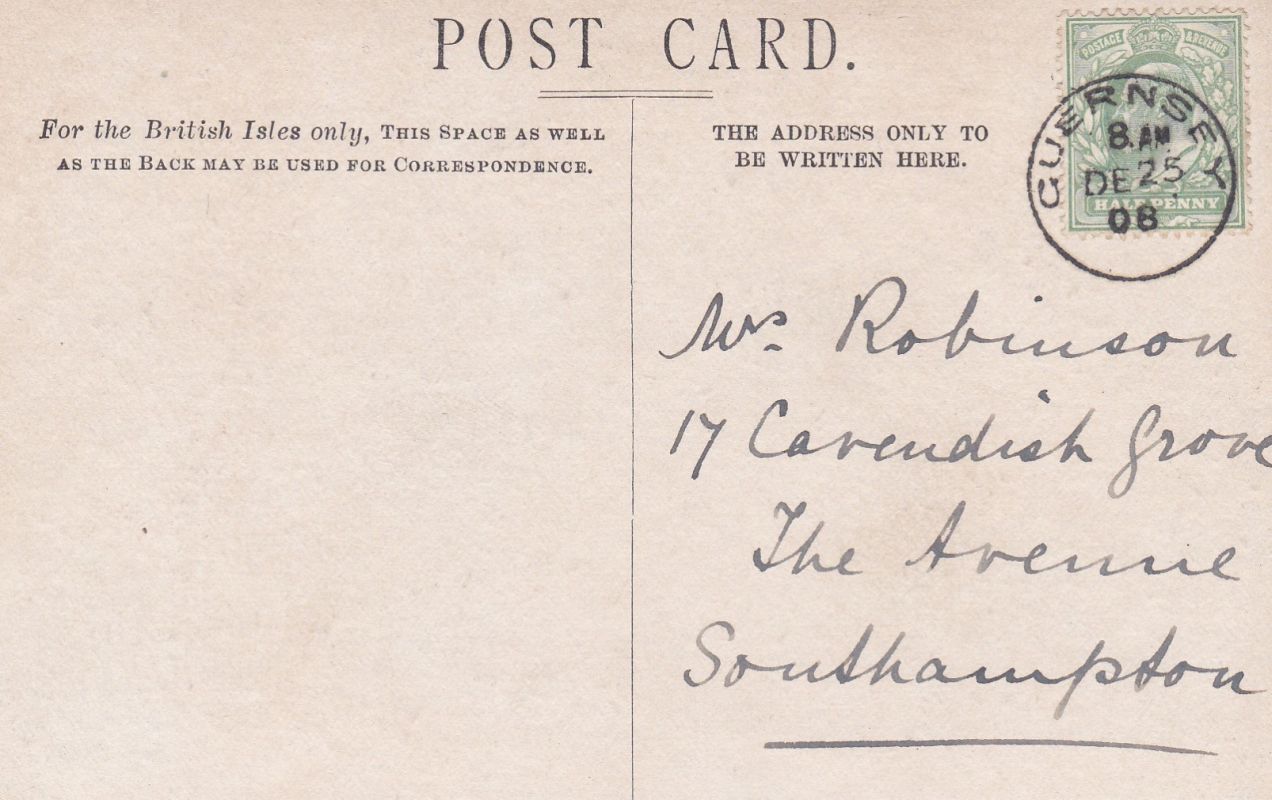 POST CARD.
For the British Isles only, THIS SPACE AS WELL
AS THE BACK MAY BE USED FOR CORRESPONDENCE.
THE ADDRESS ONLY TO
BE WRITTEN HERE.
POSTAGE & REVENUE
HALFPENNY
GUERNSEY
8 AM
DE 25
08
Mrs. Robinson
17 Cavendish Grove
The Avenue
Southampton